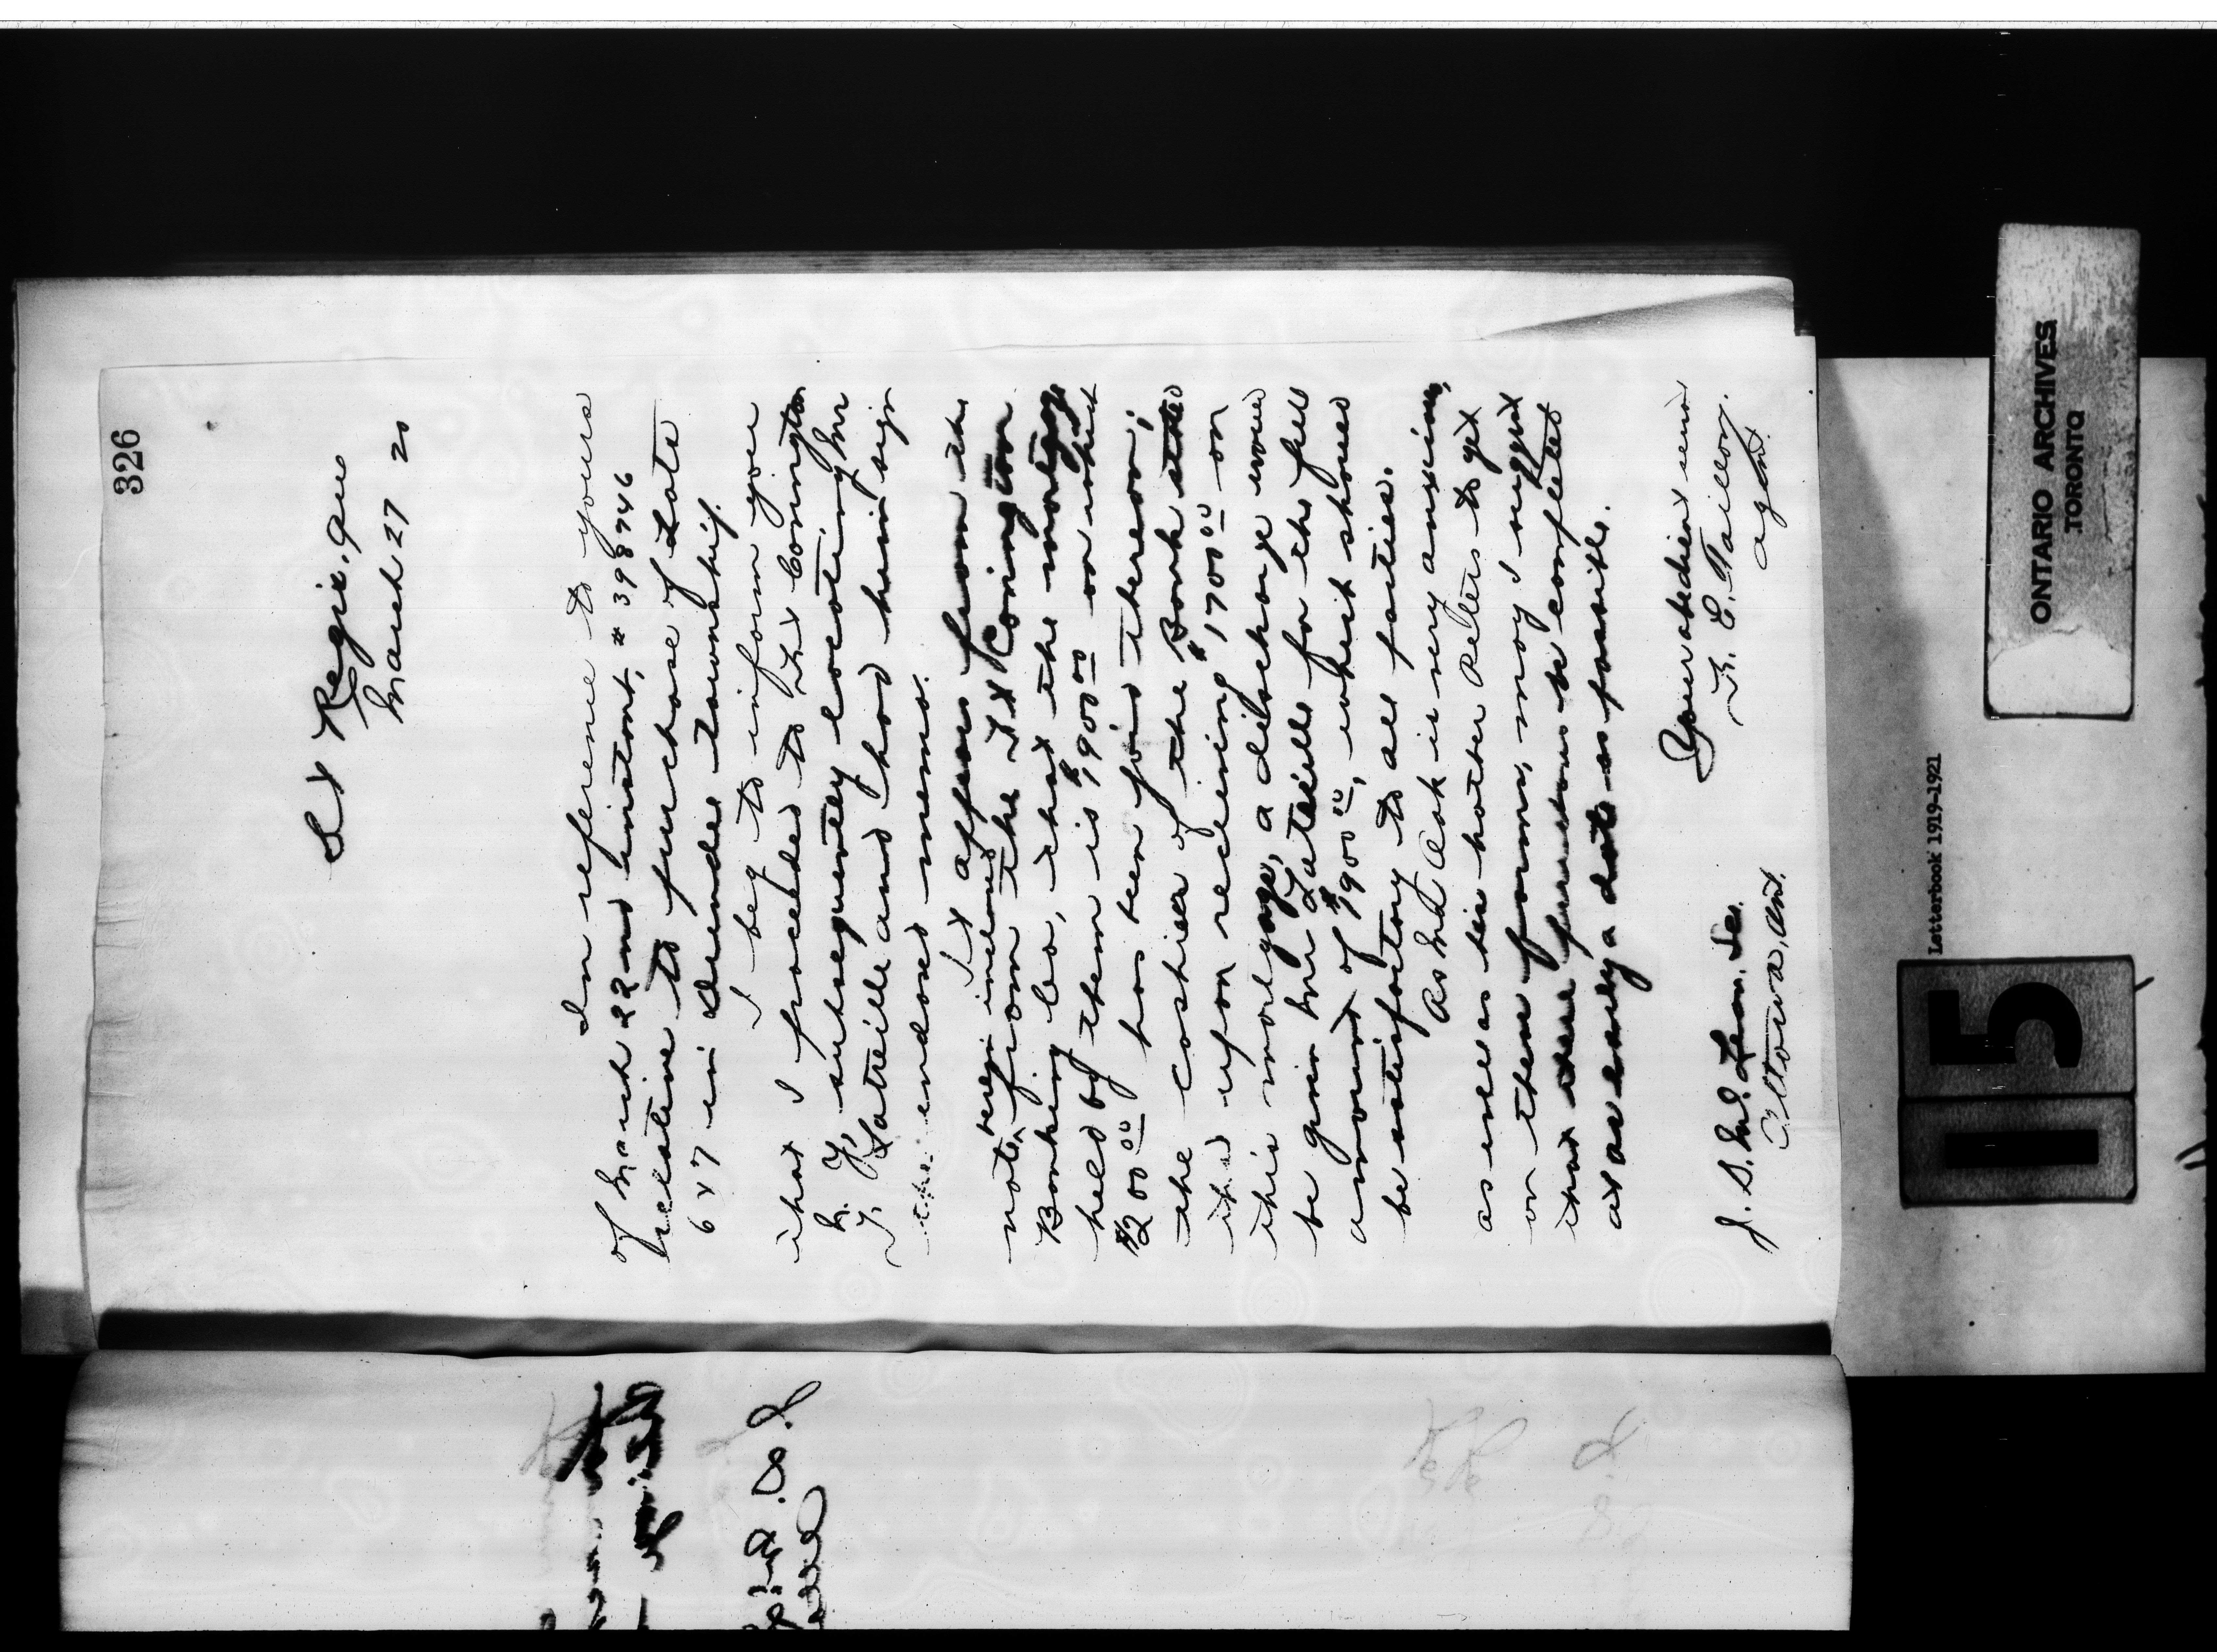 326
St Regis, Que
March 27 20
In reference to yours
of March 22nd instant, # 398746
relative to purchase of Lots
6 & 7 in Dundee Township.
I beg to inform you
that I proceeded to Ft Covington
N. Y, subsequently locating Mr
F. Latreille and had him sign
the enclosed memo.
It appears from the
note, herein inclosed
from the Ft Covington
Banking Co, that the mortgage
held by them is $1900.00 on which
$200.00 has been paid thereon;
the Cashier of the Bank stated
that upon receiving $1700.00 on
this mortgage, a discharge would
be given Mr Latreille for the full
amount of $1900.00, which should
be satisfactory to all parties.
As Mr Cook is very anxious,
as well as his brother Peter to get
on these farms, may I suggest
that these purchases be completed
at as early a date as possible.
Your obedient servant
F. E. Taillon,
agent.
J. D. McLean. Sec.
Ottawa, Ont.
15
Letterbook 1919-1921
ONTARIO ARCHIVES
TORONTO